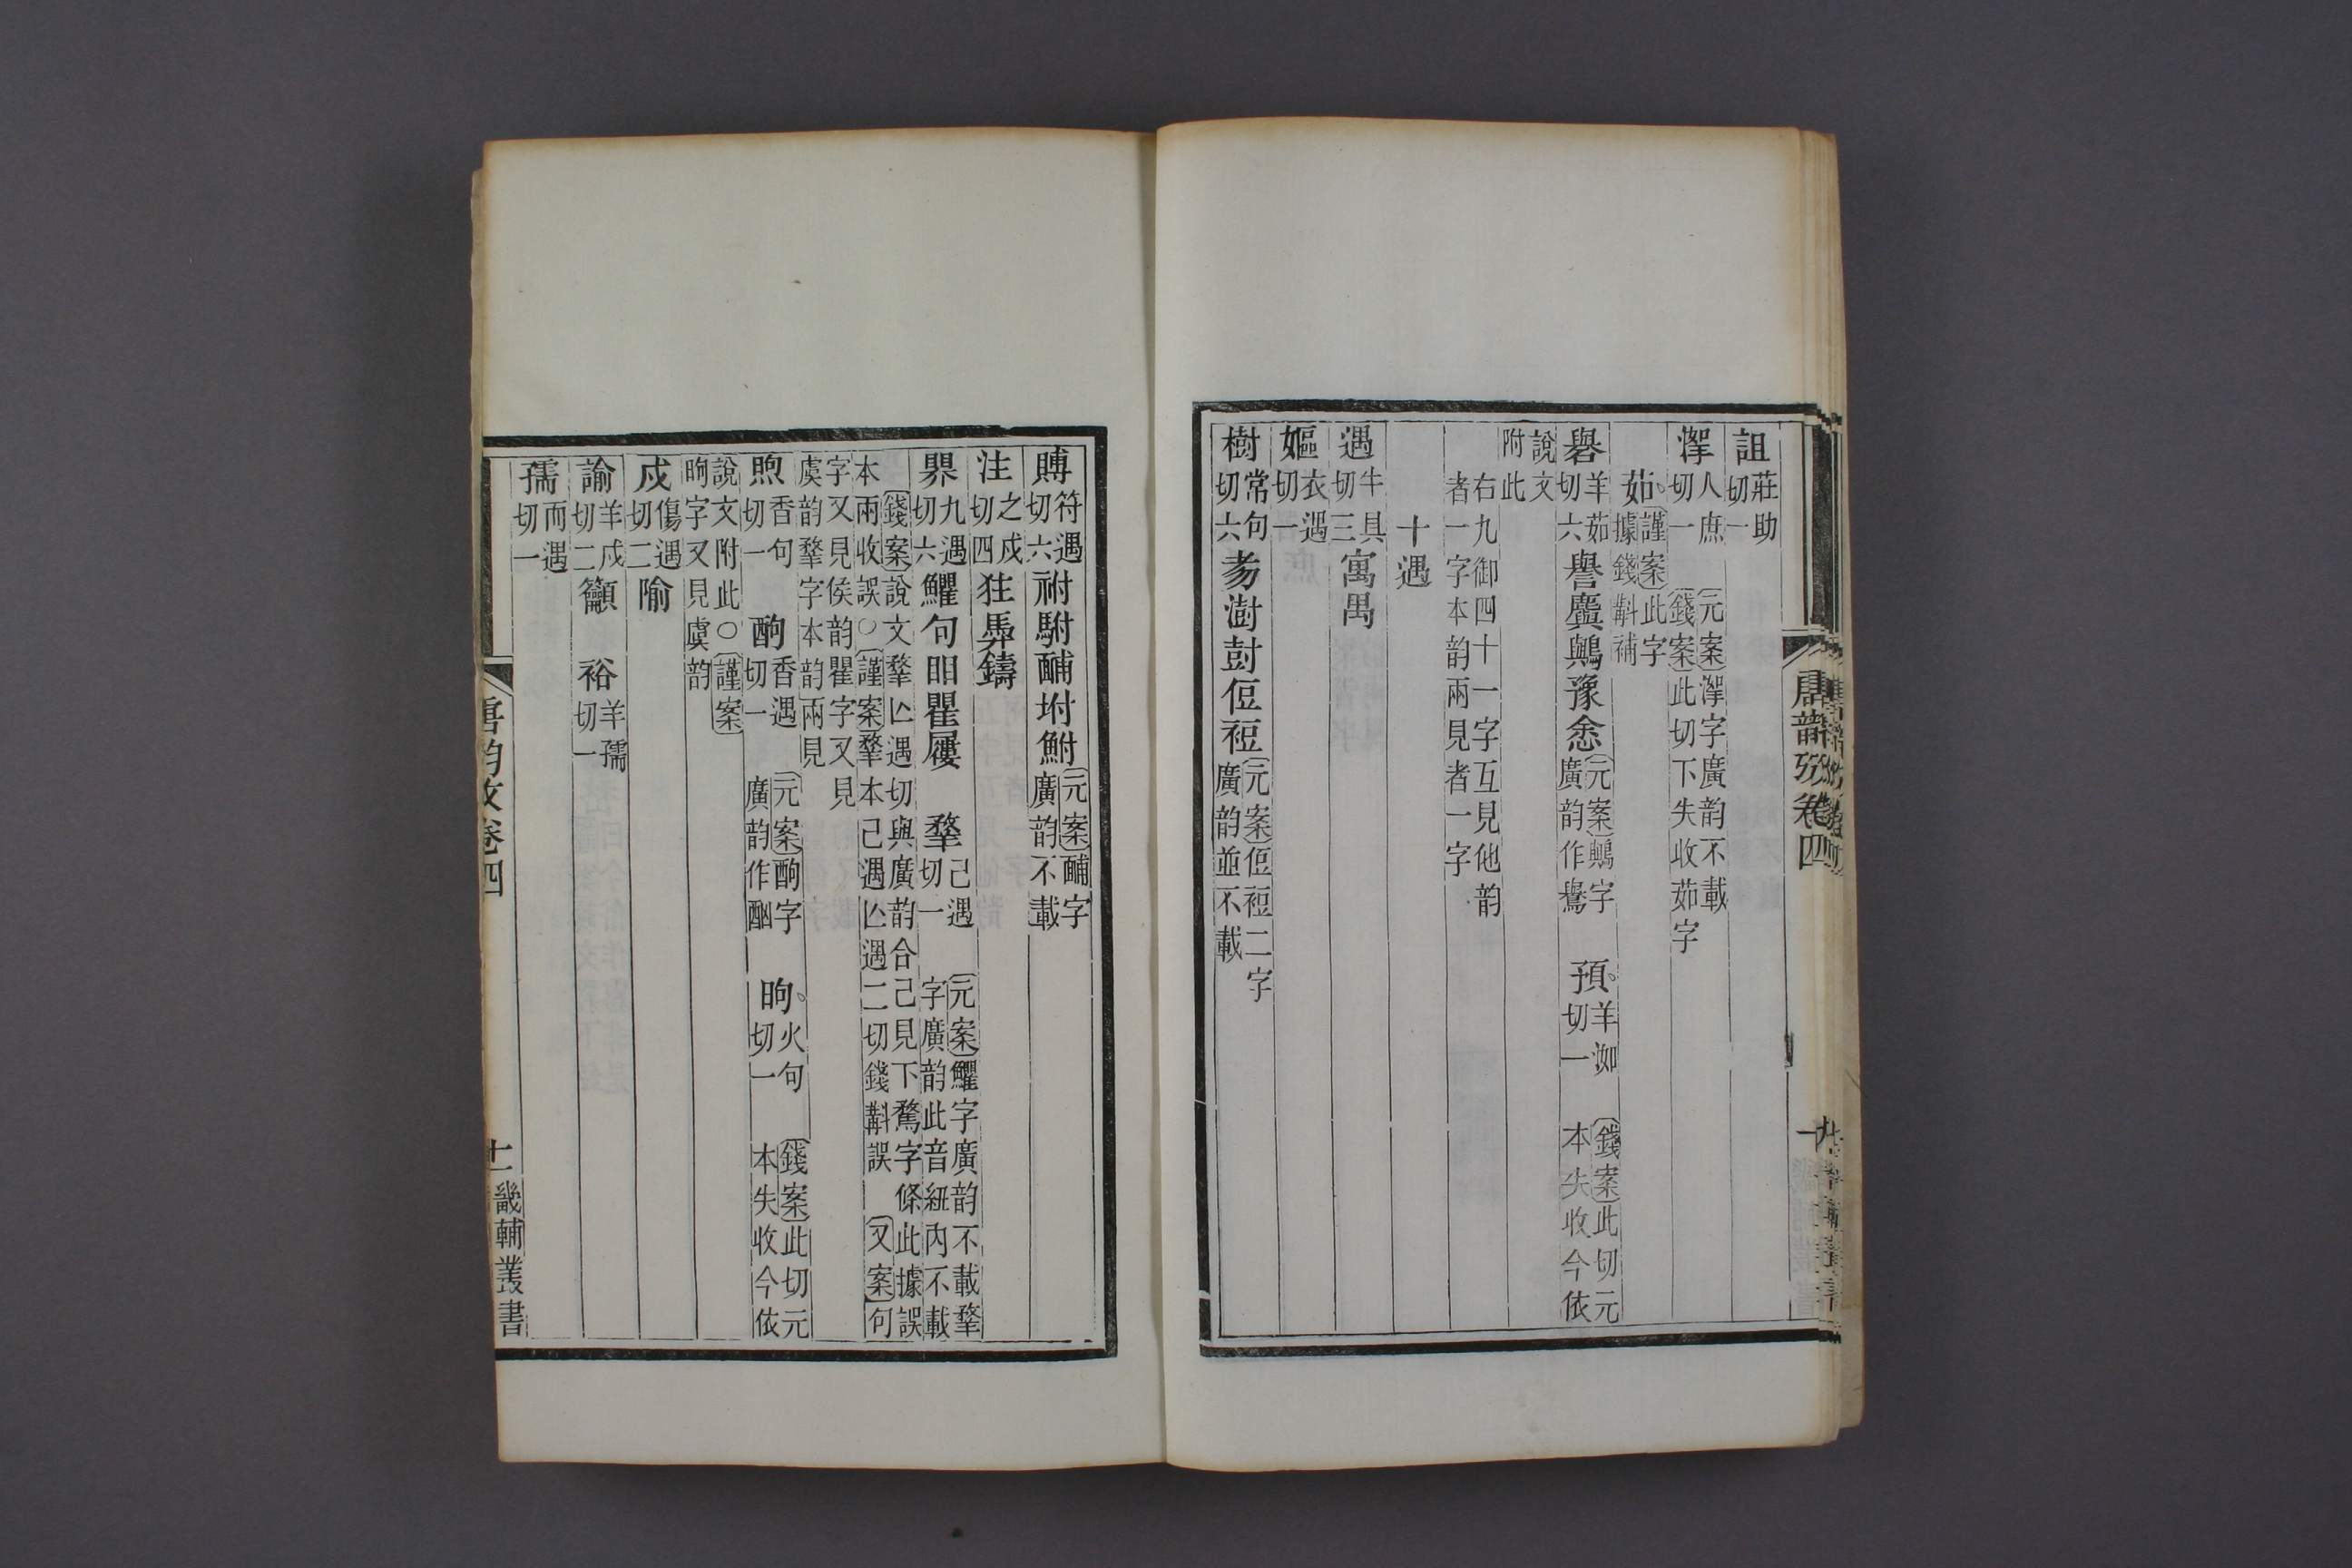 詛莊助切一
㵖人庶切一〔元案〕㵖字廣韵不載〔錢案〕此切下失收茹字
茹〔謹案〕此字據錢斠補
礜羊茹切六譽鸒豫悆〔元案〕鸒字廣韵作鸒 預羊洳切一〔錢案〕此切元本失收今依
說文附此
右九御四十一字互見他韵者一字本韵兩見者一字
十遇
遇牛具切三寓禺
嫗衣遇切一
樹常句切六澍尌侸裋〔元案〕侸裋二字廣韵並不載
唐韵攷卷四
賻符遇切六祔駙酺坿鮒〔元案〕酺字廣韵不載
注之戍切四狌馵鑄
界九遇切六句䀠瞿屨 鞪己遇切一〔元案〕字廣韵不載鞪字廣韵此音紐內不載
〔錢案〕說文鞪亾遇切與廣韵合己見下騖字條此據誤本兩收誤○〔謹案〕鞪本己遇亾遇二切錢斠誤〔又案〕句
字又見侯韵瞿字又見虞韵鞪字本韵兩見
煦香句切一 酗香遇切一〔元案〕酗字廣韵作酗 昫火句切一〔錢案〕此切元本失收今依
說文附此○〔謹案〕昫字又見虞韵
戍傷遇切二隃
諭羊戍切二籲 裕羊孺切一
孺而遇切一
唐韵攷卷四
十一
畿輔叢書